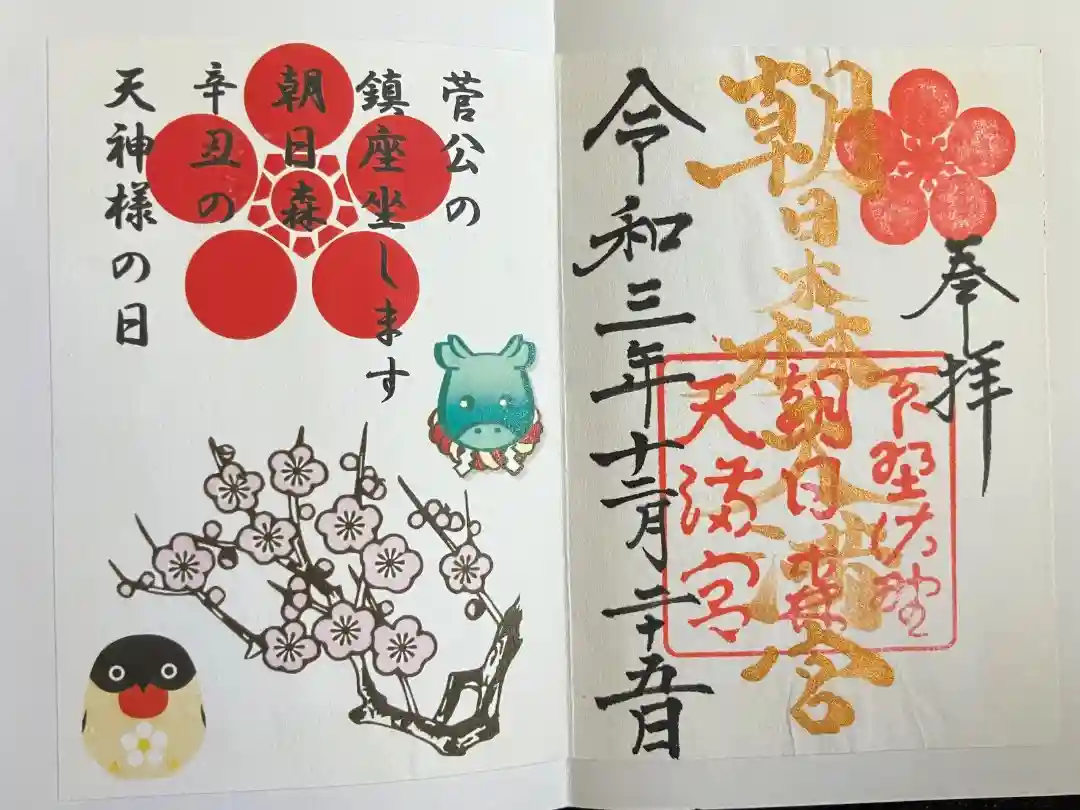 奉拝
朝日森天満宮
下野佐野
朝日森
天満宮
令和三年十二月二十五日
菅公の
鎮座坐します
朝日森
辛丑の
天神様の日